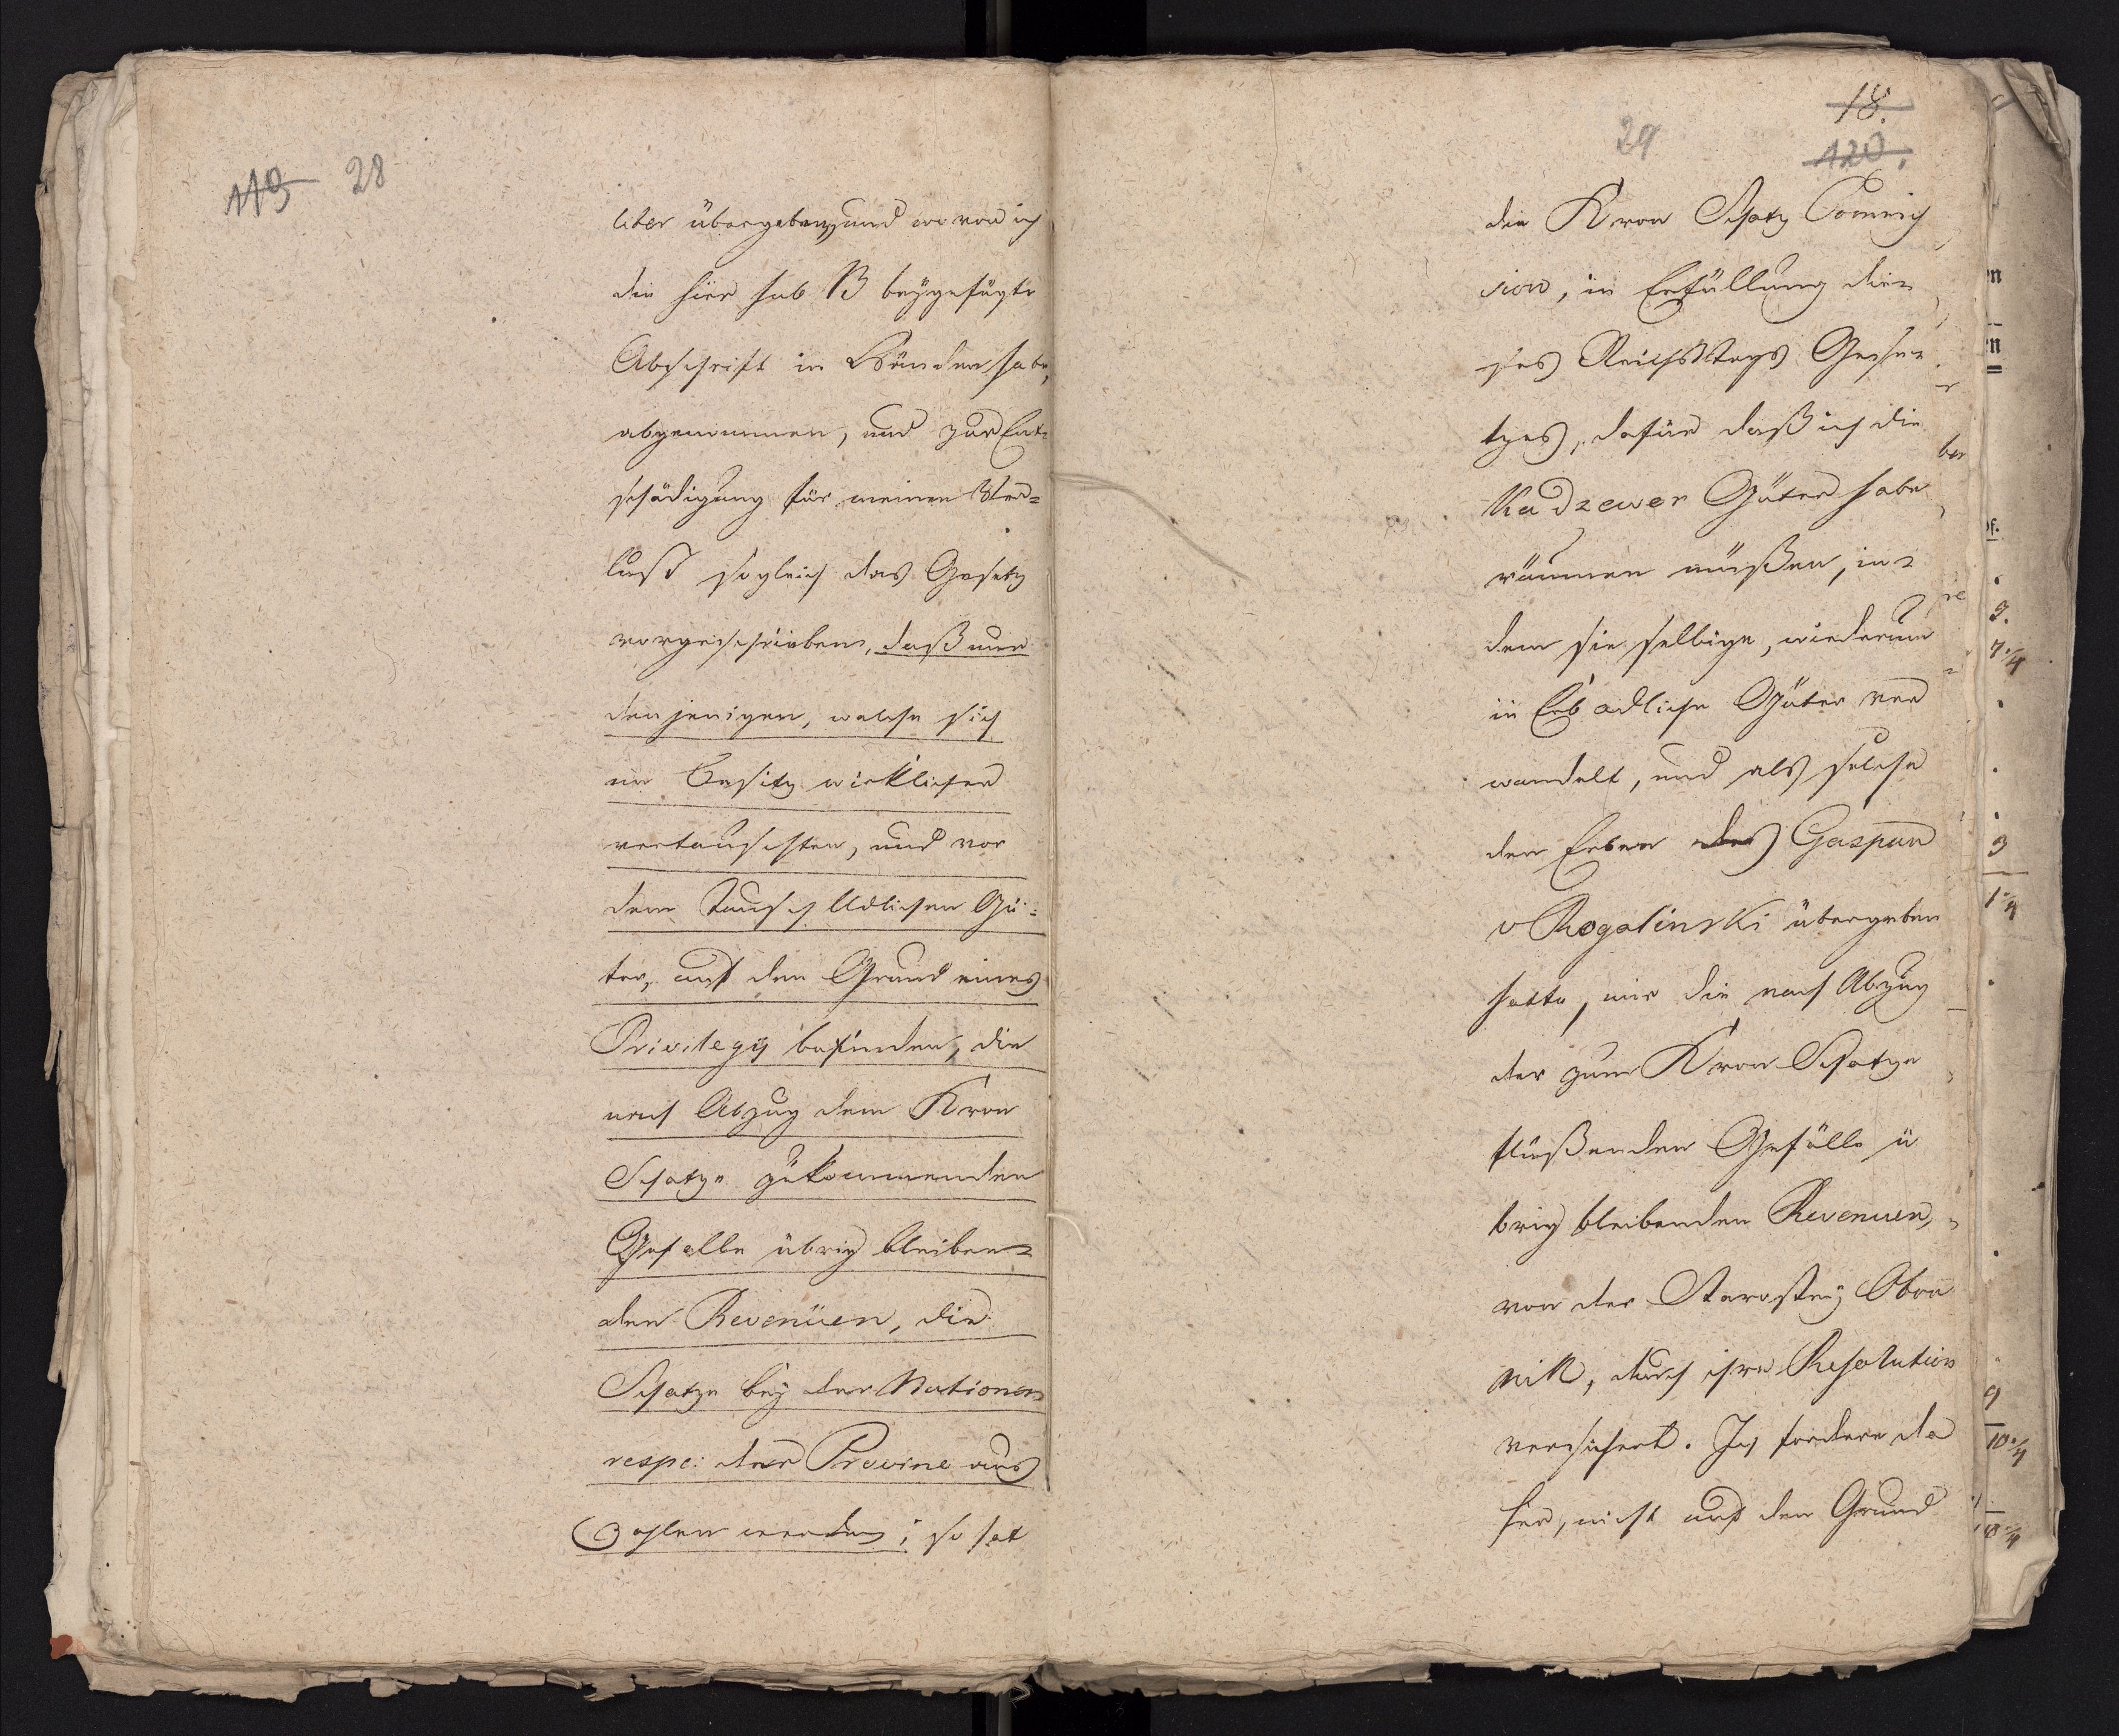 119 28
liter übergeben, und wovon ich
die hier sub B beygefügte
Abschrift in Händen habe,
abgenommen, und zur Ent=
schädigung für meinen Ver=
lust sogleich das Gesetz
vorgeschrieben, daß nur
denjenigen, welche sich
im Besitz wirklicher
vertauschten, und vor
dem Tausch Adlichen Gü=
ter, auf den Grund eines
Privilegij befinden, die
nach Abzug dem Kron
Schatze zukommenden
Gefälle übrig bleiben=
den Revenüen, die
Schatze bey der Nationen
respe: der Provinc aus
Zahlen werden; so hat
18.
29 120.
die Kron Schatz Commis
sion, in Erfüllung die=
ses Reichstags Gese=
tzes, dafür daß ich die
Kadzewer Güter habe
räumen müßen, in=
dem sie selbige, wiederum
in Erb adliche Güter ver
wandelt, und als solche
den Erben des Gaspar
v Rogalinski übergeben
hatte, mir die nach Abzug
der zum Kron Schatze
flüßenden Gefälle ü
brig bleibenden Revenuen,
von der Starostey Obor
nik, durch ihre Resolution
versichert. Ich fordere da
her, nicht auf den Grund